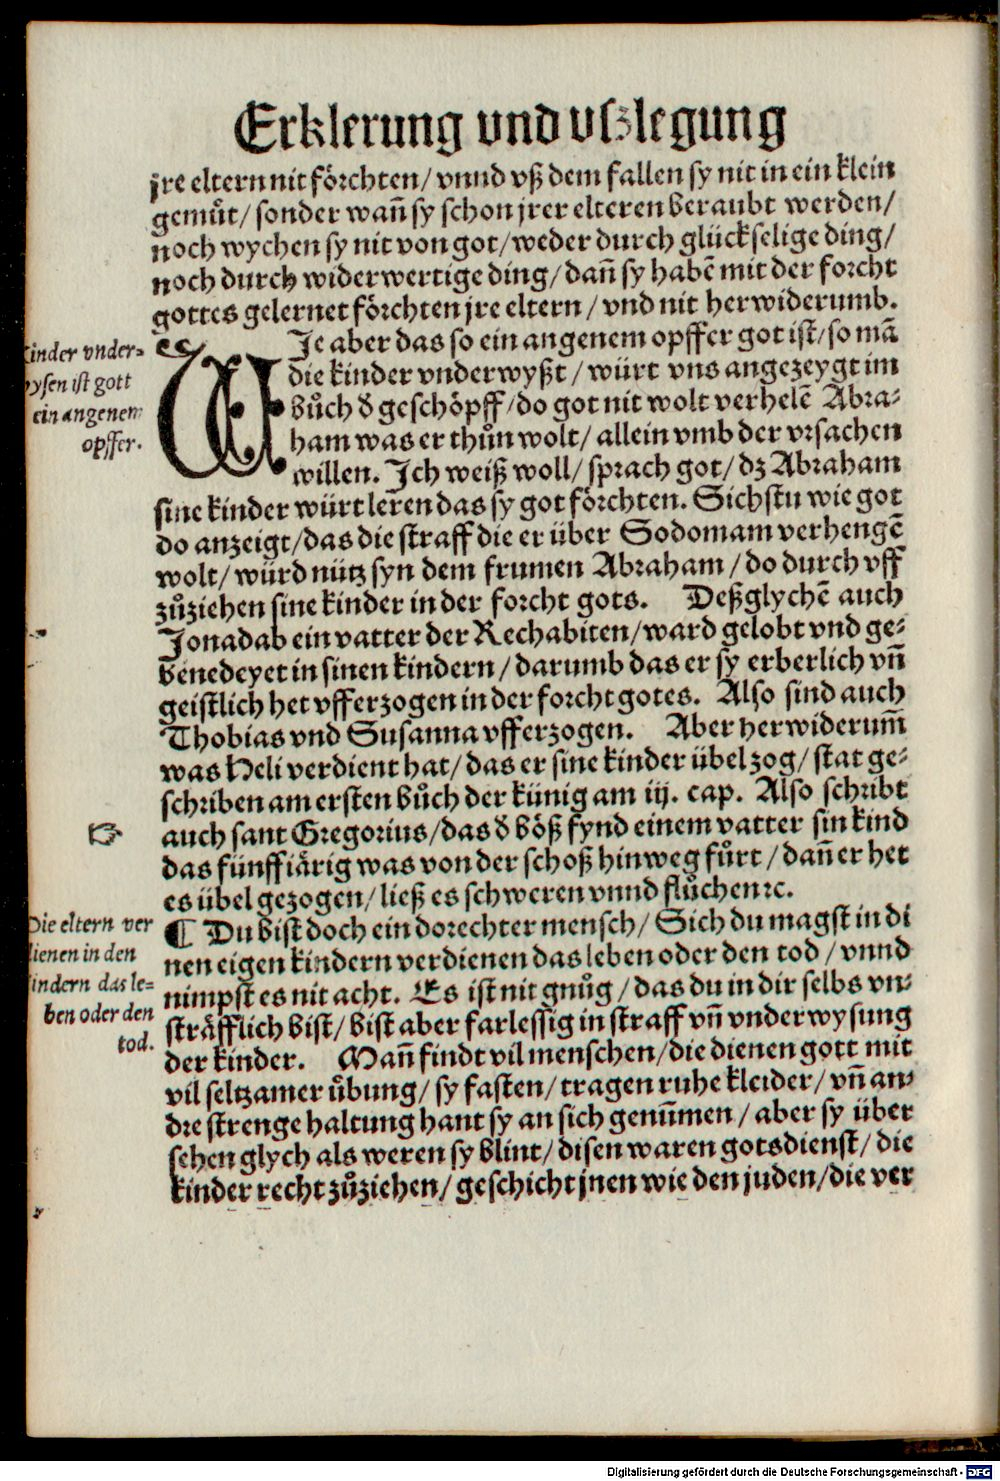 Erklerung vnd vſzlegung
jre eltern nit förchten/ vnnd vß dem fallen sy nit in ein klein
gemuͤt/ sonder wañ sy schon jrer elteren beraubt werden/
noch wychen sy nit von got/ weder durch glückselige ding/
noch durch widerwertige ding/ dañ sy habē mit der forcht
gottes gelernet förchten jre eltern/ vnd nit herwiderumb.
WIe aber das so ein angenem opffer got ist/ so mā
die kinder vnderwyßt/ würt vns angezeygt im
buͦch đ geschöpff/ do got nit wolt verhelē Abra-
ham was er thuͦn wolt/ allein vmb der vrsachen
willen. Ich weiß woll/ sprach got/ dz Abraham
sine kinder würt leren das sy got förchten. Sichstu wie got
do anzeigt/ das die straff die er über Sodomam verhengē
wolt/ würd nütz syn dem frumen Abraham/ do durch vff
zuͦziehen sine kinder in der forcht gots. Deßglychē auch
Jonadab ein vatter der Rechabiten/ ward gelobt vnd ge-
benedeyet in sinen kindern/ darumb das er sy erberlich vñ
geistlich het vfferzogen in der forcht gotes. Also sind auch
Thobias vnd Susanna vfferzogen. Aber herwiderum̄
was Heli verdient hat/ das er sine kinder übel zog/ stat ge-
schriben am ersten buͦch der künig am iij. cap. Also schribt
auch sant Gregorius/ das đ böß fynd einem vatter sin kind
das fünffiärig was von der schoß hinweg fuͦrt/ dañ er het
es übel gezogen/ ließ es schweren vnnd fluͦchen ⁊c.
¶ Du bist doch ein dorechter mensch/ Sich du magst in di
nen eigen kindern verdienen das leben oder den tod/ vnnd
nimpst es nit acht. Es ist nit gnuͦg/ das du in dir selbs vn-
sträfflich bist/ bist aber farlessig in straff vñ vnderwysung
der kinder. Mañ findt vil menschen/ die dienen gott mit
vil seltzamer uͤbung/ sy fasten/ tragen ruhe kleider/ vñ an-
dre strenge haltung hant sy an sich genum̄en/ aber sy über
sehen glych als weren sy blint/ disen waren gotsdienst/ die
kinder recht zuͦziehen/ geschicht jnen wie den juden/ die ver
Kinder vnder-
wysen ist gott
ein angenem
opffer.
Die eltern ver
dienen in den
kindern das le-
ben oder den
tod.
Digitalisierung gefördert durch die Deutsche Forschungsgemeinschaft - DFG